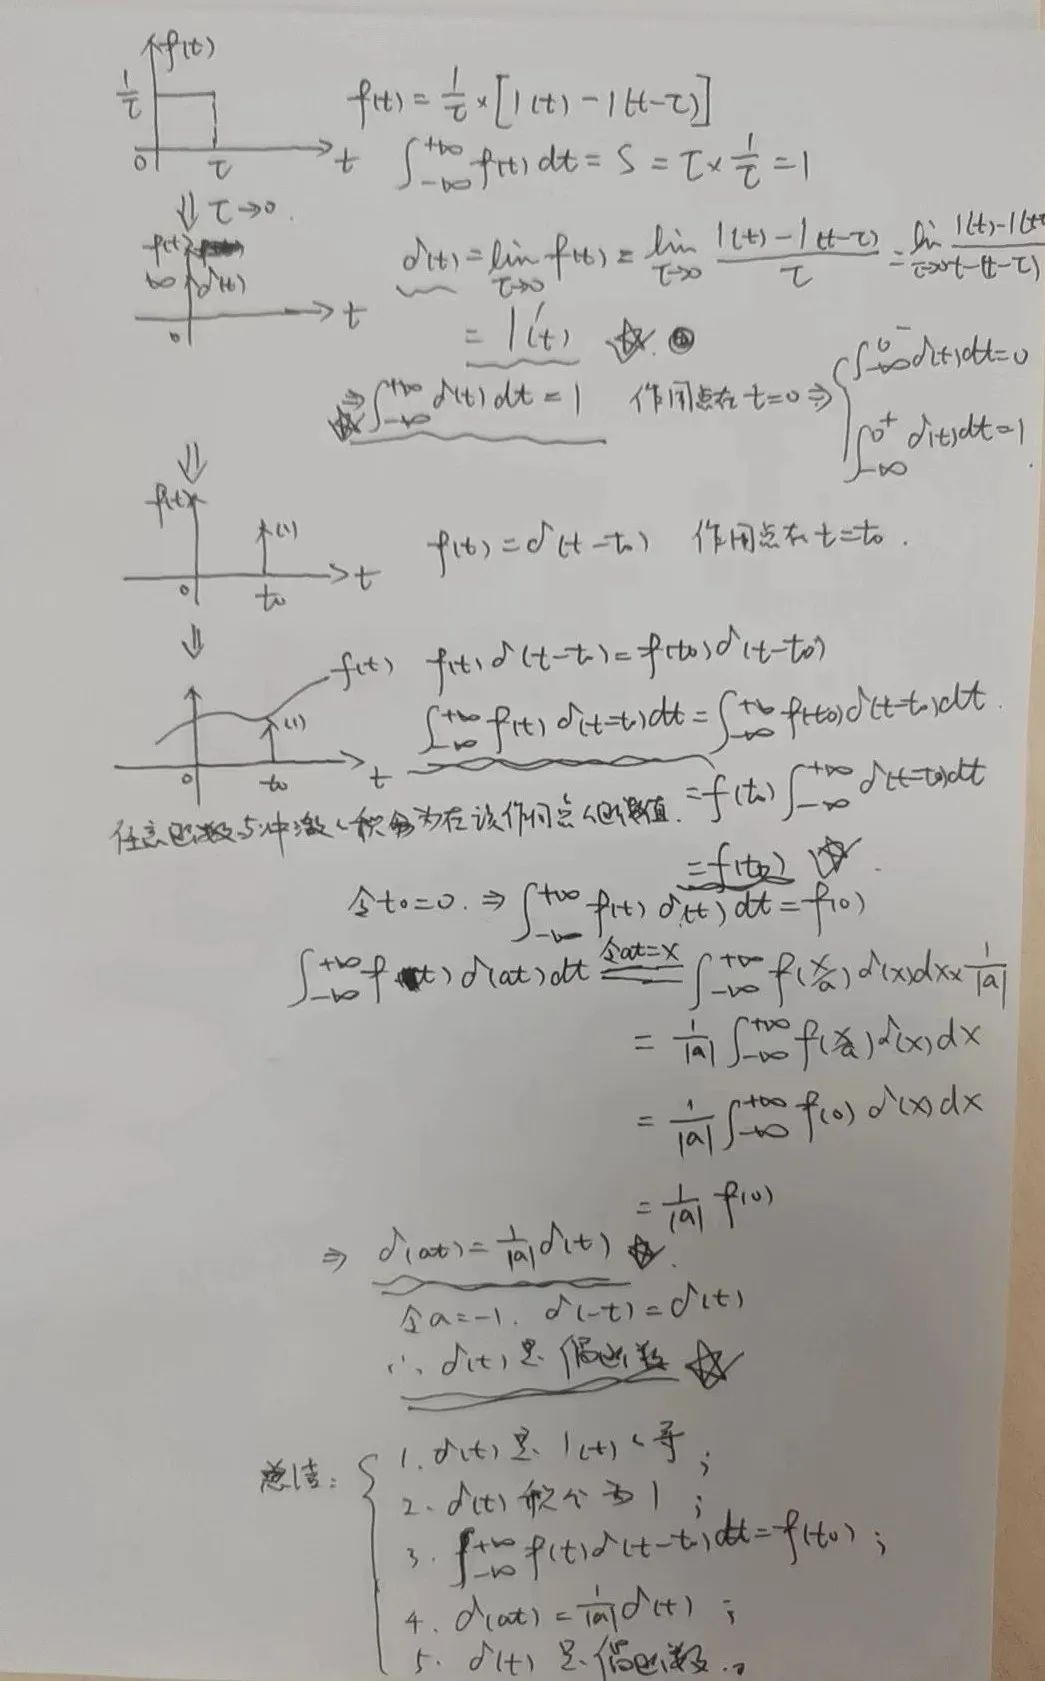 f(t)
1/τ
0 τ t
f(t) = 1/τ × [1(t) - 1(t-τ)]
∫_{-∞}^{+∞} f(t) dt = S = τ × 1/τ = 1
⇓ τ→0.
f(t)
∞ δ(t)
0 t
δ(t) = lim_{τ→0} f(t) = lim_{τ→0} (1(t) - 1(t-τ))/τ = lim_{τ→0} (1(t) - 1(t-τ))/(t-(t-τ))
= 1'(t) ☆.
⇒ ∫_{-∞}^{+∞} δ(t) dt = 1 作用点在 t=0 ⇒ { ∫_{-∞}^{0⁻} δ(t) dt = 0
☆
∫_{-∞}^{0⁺} δ(t) dt = 1.
⇓
f(t)
(1)
0 t₀ t
f(t) = δ(t-t₀) 作用点在 t=t₀.
⇓
f(t)
(1)
0 t₀ t
f(t) δ(t-t₀) = f(t₀) δ(t-t₀)
∫_{-∞}^{+∞} f(t) δ(t-t₀) dt = ∫_{-∞}^{+∞} f(t₀) δ(t-t₀) dt.
= f(t₀) ∫_{-∞}^{+∞} δ(t-t₀) dt
任意函数与冲激、积分为在该作用点、函数值.
= f(t₀) ☆.
令 t₀=0. ⇒ ∫_{-∞}^{+∞} f(t) δ(t) dt = f(0)
∫_{-∞}^{+∞} f(t) δ(at) dt 令at=x = ∫_{-∞}^{+∞} f(x/a) δ(x) dx × 1/|a|
= 1/|a| ∫_{-∞}^{+∞} f(x/a) δ(x) dx
= 1/|a| ∫_{-∞}^{+∞} f(0) δ(x) dx
= 1/|a| f(0)
⇒ δ(at) = 1/|a| δ(t) ☆.
令 a=-1. δ(-t) = δ(t)
∴ δ(t) 是偶函数 ☆
总结: { 1. δ(t) 是 1(t)、导;
2. δ(t) 积分为 1;
3. ∫_{-∞}^{+∞} f(t) δ(t-t₀) dt = f(t₀);
4. δ(at) = 1/|a| δ(t);
5. δ(t) 是偶函数.。